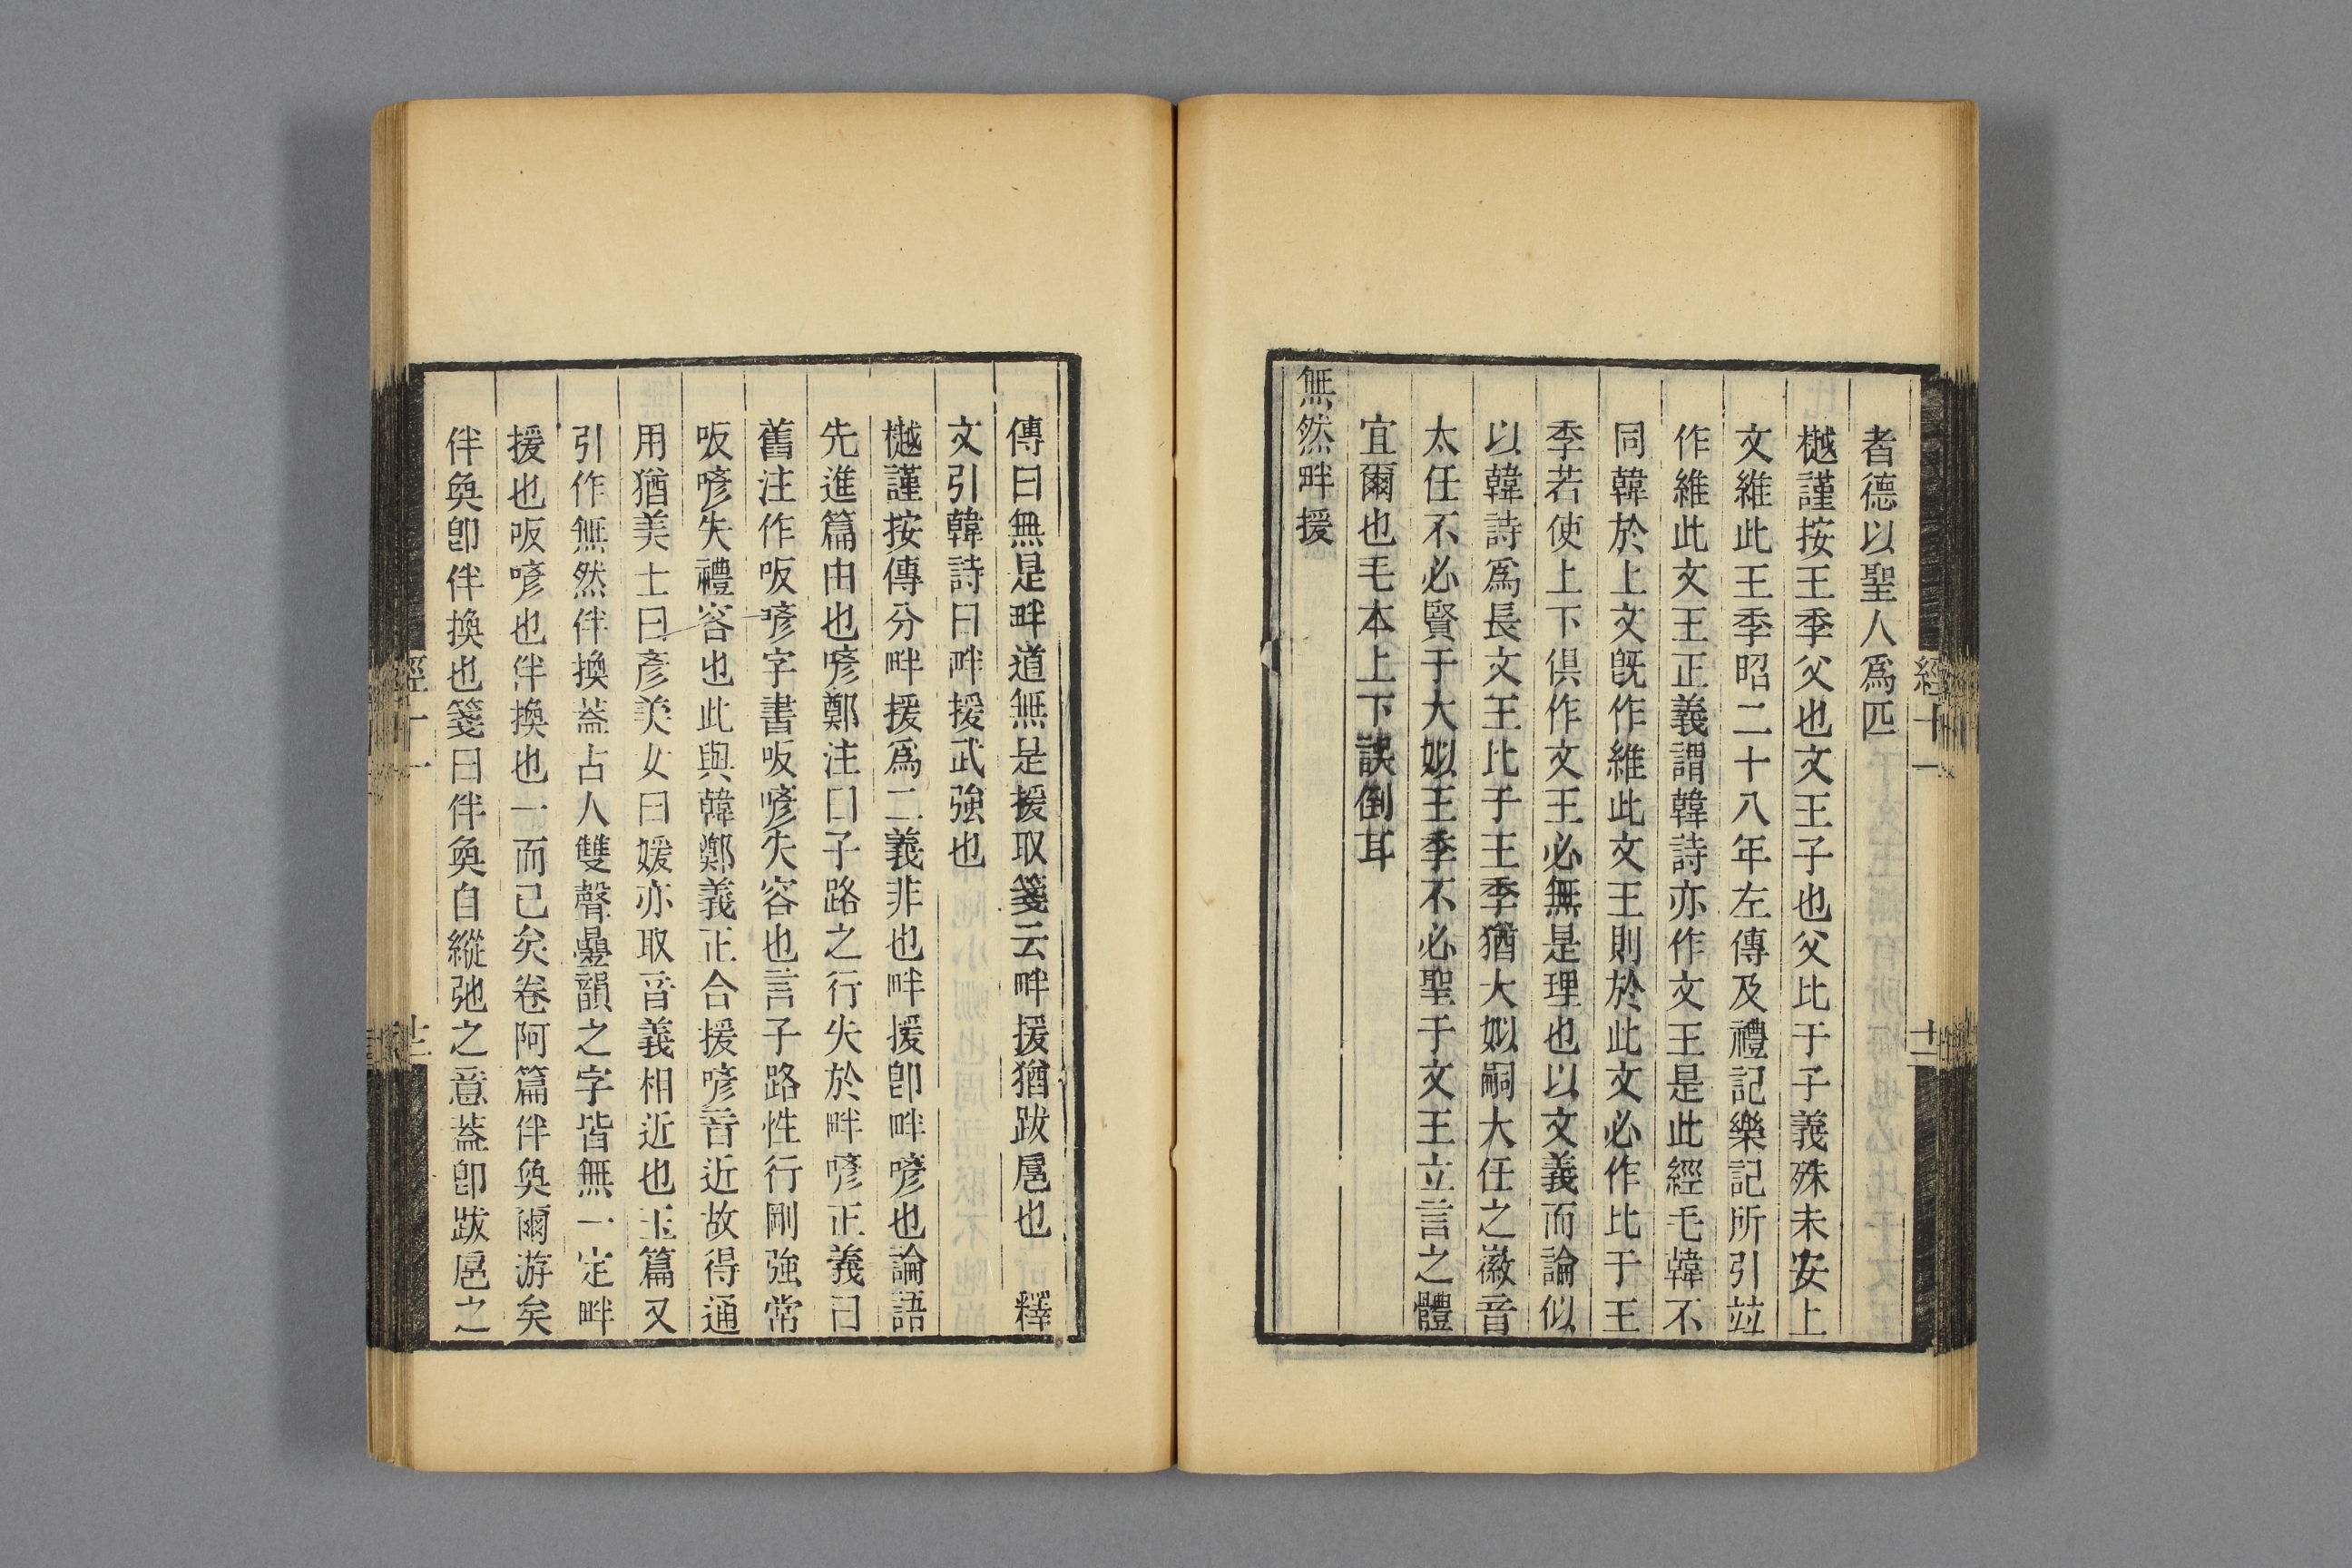 者德以聖人爲匹
樾謹按王季父也文王子也父比于子義殊未安上
文維此王季昭二十八年左傳及禮記樂記所引竝
作維此文王正義謂韓詩亦作文王是此經毛韓不
同韓於上文旣作維此文王則於此文必作比于王
季若使上下俱作文王必無是理也以文義而論似
以韓詩爲長文王比于王季猶大姒嗣大任之徽音
太任不必賢于大姒王季不必聖于文王立言之體
宜爾也毛本上下誤倒耳
無然畔援
經十一
傳曰無是畔道無是援取箋云畔援猶跋扈也 釋
文引韓詩曰畔援武強也
樾謹按傳分畔援爲二義非也畔援卽畔喭也論語
先進篇由也喭鄭注曰子路之行失於畔喭正義曰
舊注作㕫喭字書㕫喭失容也言子路性行剛強常
㕫喭失禮容也此與韓鄭義正合援喭音近故得通
用猶美士曰彥美女曰媛亦取音義相近也玉篇又
引作無然伴換葢古人雙聲疊韻之字皆無一定畔
援也㕫喭也伴換也一而已矣卷阿篇伴奐爾游矣
伴奐卽伴換也箋曰伴奐自縱弛之意葢卽跋扈之